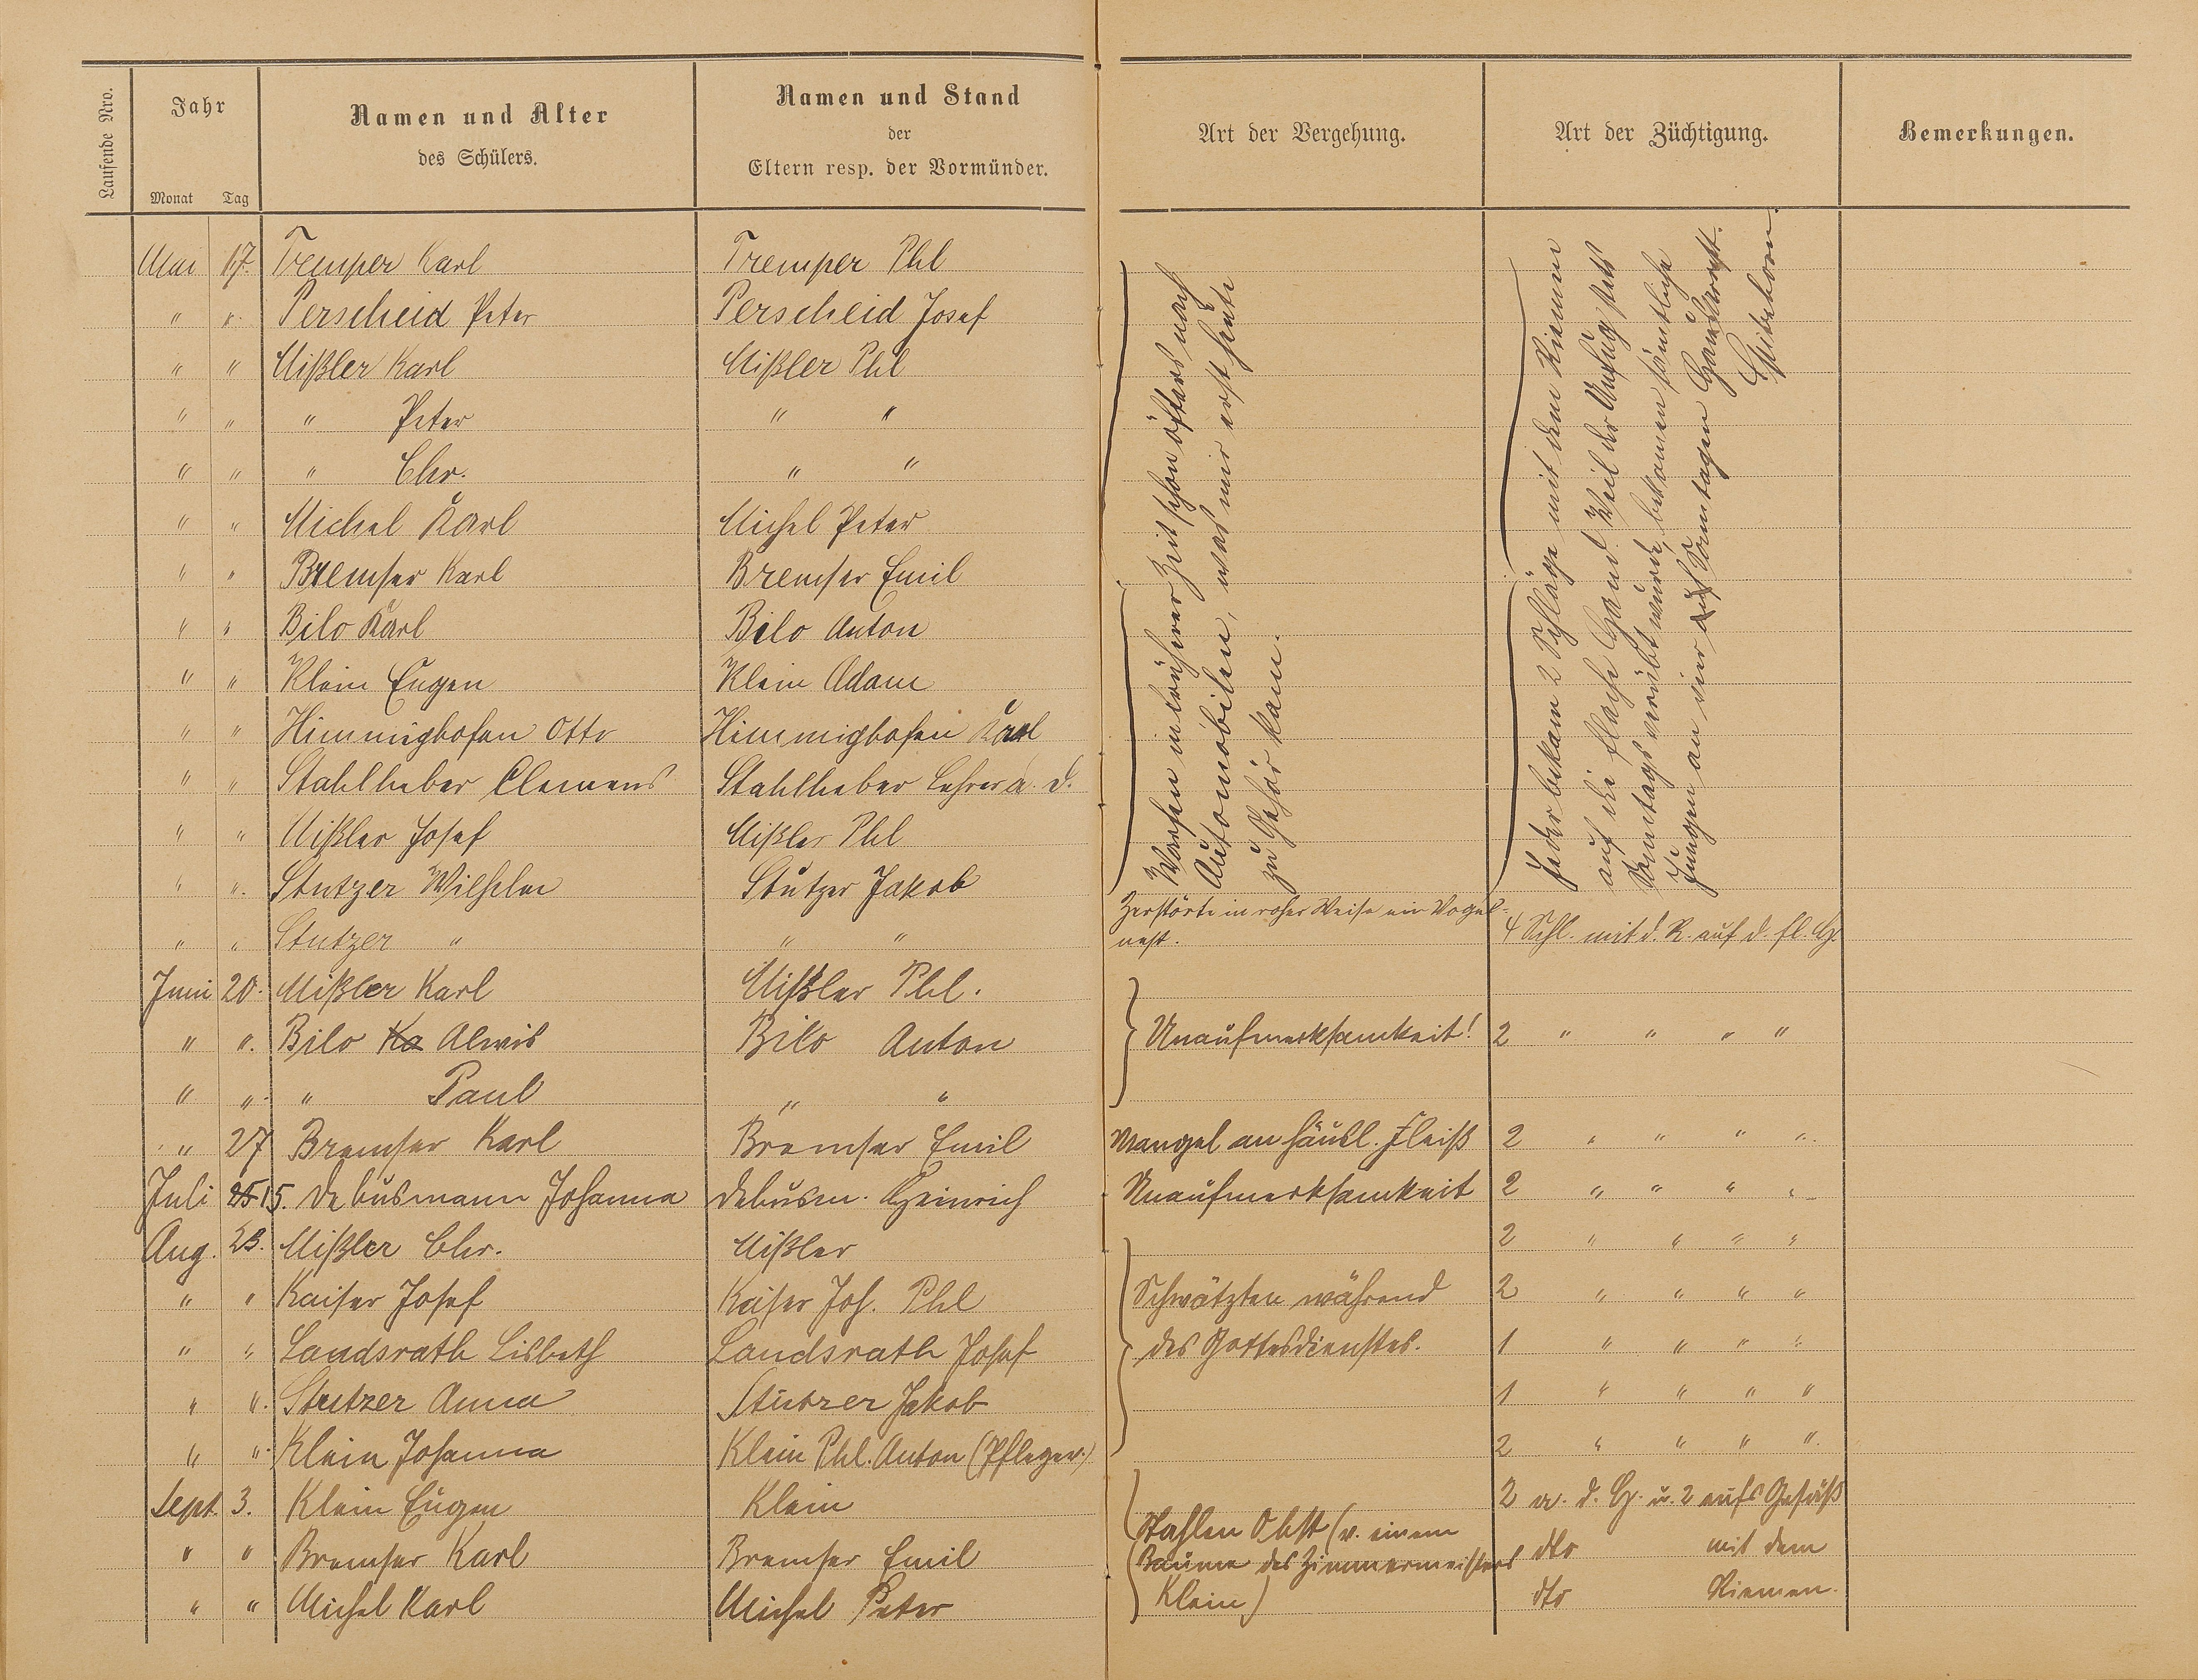 Laufende Nro.
Jahr
Monat Tag
Namen und Alter
des Schülers.
Namen und Stand
der
Eltern resp. der Vormünder.
Art der Vergehung.
Art der Züchtigung.
Bemerkungen.
Mai 17. Tremper Karl Tremper Phl
" " Perscheid Peter Perscheid Josef
" " Mißler Karl Mißler Phl
" " " Peter " "
" " " Chr. " "
" " Michel Karl Michel Peter
" " Bremser Karl Bremser Emil
" " Bilo Karl Bilo Anton
" " Klein Eugen Klein Adam
" " Himmighofen Otto Himmighofen Karl
" " Stahlheber Clemens Stahlheber Lehrer a. D.
" " Mißler Josef Mißler Phl
" " Stutzer Wilhelm Stutzer Jakob
Warfen in früherer Zeit schon öfters nach
Automobilen, was mir erst heute
zu Gehör kam.
Jeder bekam 2 Schläge mit dem Riemen
auf die flache Hand. Weil der Unfug stets
Sonntags verübt wurde, bekamen sämtliche
Jungen an vier Sonntagen Hausarrest.
" " Stutzer " " " Zerstörte in roher Weise ein Vogel=
nest. 4 Schl. mit d. R. auf d. fl. H.
Juni 20. Mißler Karl Mißler Phl.
" " Bilo Ka Alwis Bilo Anton Unaufmerksamkeit! 2 " " " "
" " " Paul " "
" 27 Bremser Karl Bremser Emil Mangel an häusl. Fleiß 2 " " " "
Juli 25 15. Debusmann Johanna Debusm. Heinrich Unaufmerksamkeit 2 " " " "
Aug. 23. Mißler Chr. Mißler 2 " " " "
" " Kaiser Josef Kaiser Jos. Phl Schwätzten während 2 " " " "
" " Landsrath Lisbeth Landsrath Josef des Gottesdienstes. 1 " " " "
" " Stutzer Anna Stutzer Jakob 1 " " " "
" " Klein Johanna Klein Phl. Anton (Pflegev.) 2 " " " "
Sept. 3. Klein Eugen Klein 2 a. d. H. u. 2 aufs Gesäß
" " Bremser Karl Bremser Emil Stahlen Obst (v. einem
Baume des Zimmermeisters dto mit dem
" " Michel Karl Michel Peter Klein) dto Riemen.